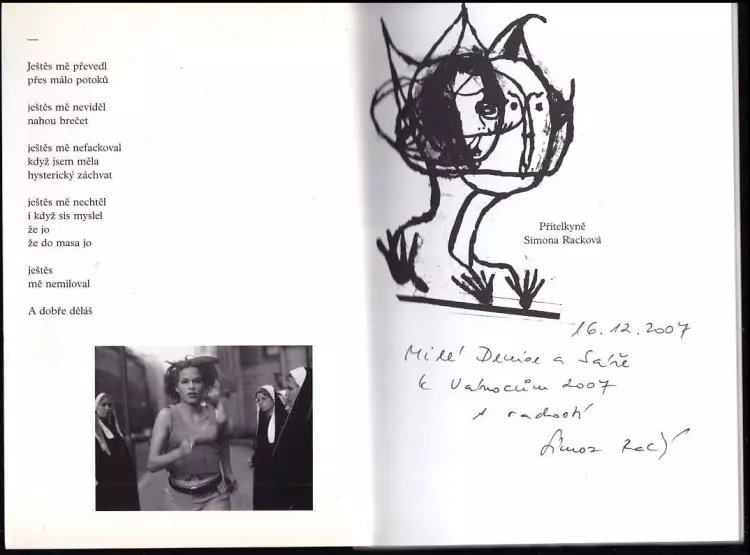 Ještěs mě převedl
přes málo potoků
ještěs mě neviděl
nahou brečet
ještěs mě nefackoval
když jsem měla
hysterický záchvat
ještěs mě nechtěl
i když sis myslel
že jo
že do masa jo
ještěs
mě nemiloval
A dobře děláš
Přítelkyně
Simona Racková
16.12.2007
Milé Denise a Sáře
k Vánocům 2007
s radostí
Simona